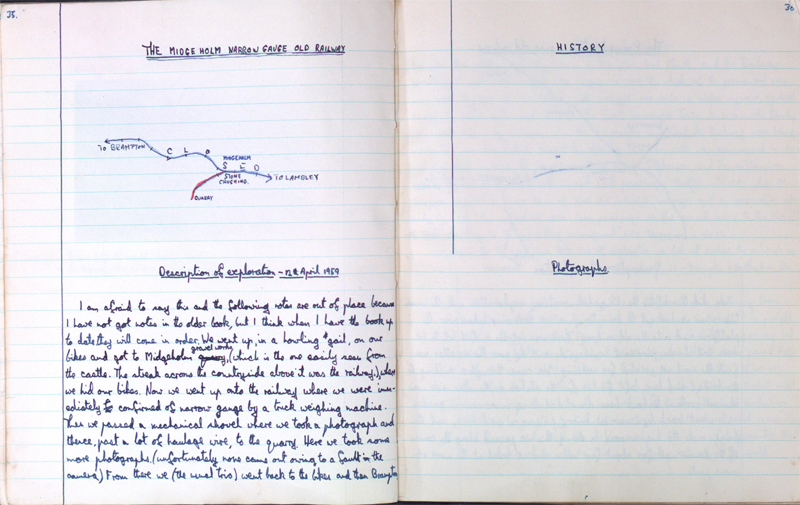 35.
THE MIDGEHOLM NARROW GAUGE OLD RAILWAY
TO BRAMPTON
C L O
MIDGEHOLM
S E D
STONE
CRUSHING.
TO LAMBLEY
QUARRY
Description of exploration - 12th April 1959
I am afraid to say this and the following notes are out of place because
I have not got notes in the older book, but I think when I have the book up
to date they will come in order. We went up, in a howling gail, on our
bikes and got to Midgeholm gravel works quarry, (which is the one easily seen from
the castle. The streak across the countryside above it was the railway.), where
we hid our bikes. Now we went up onto the railway where we were imm-
ediately confirmed of narrow gauge by a truck weighing machine.
Then we passed a mechanical shovel where we took a photograph and
thence, past a lot of haulage wire, to the quarry. Here we took some
more photographs. (unfortunately none came out owing to a fault in the
camera.) From there we (the usual trio) went back to the bikes and then Brampton
36
HISTORY
Photographs.